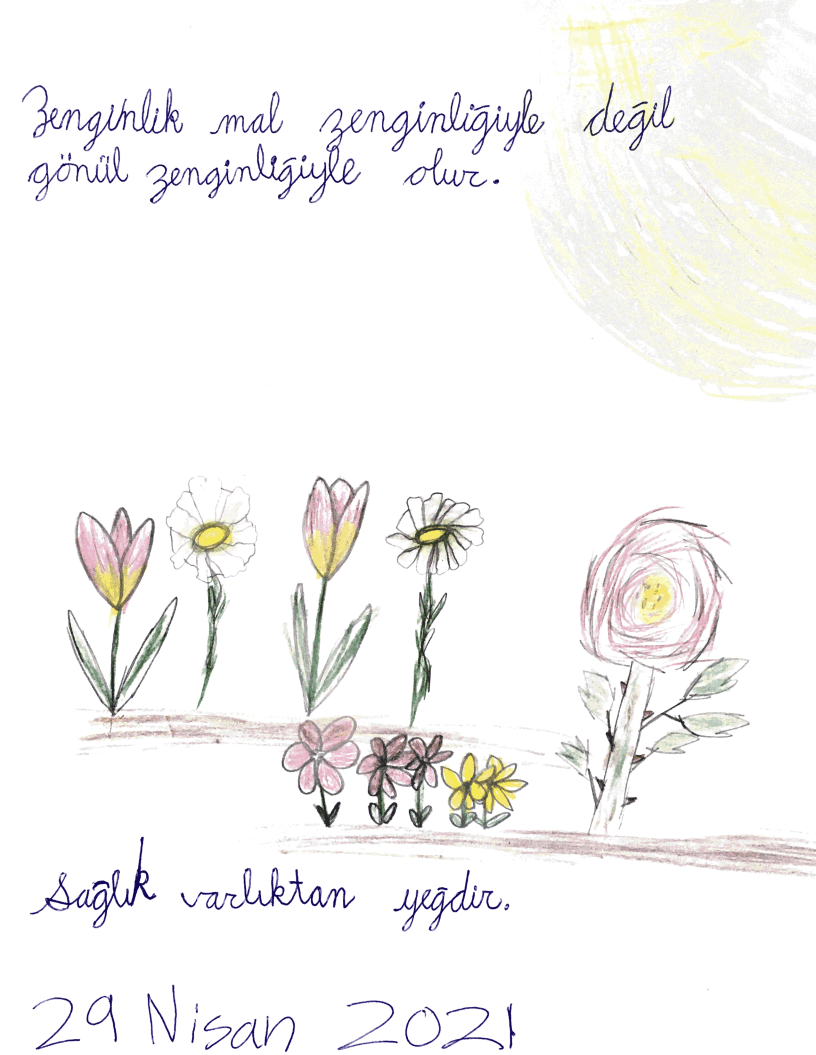 Zenginlik mal zenginliğiyle değil
gönül zenginliğiyle olur.
Sağlık varlıktan yeğdir.
29 Nisan 2021